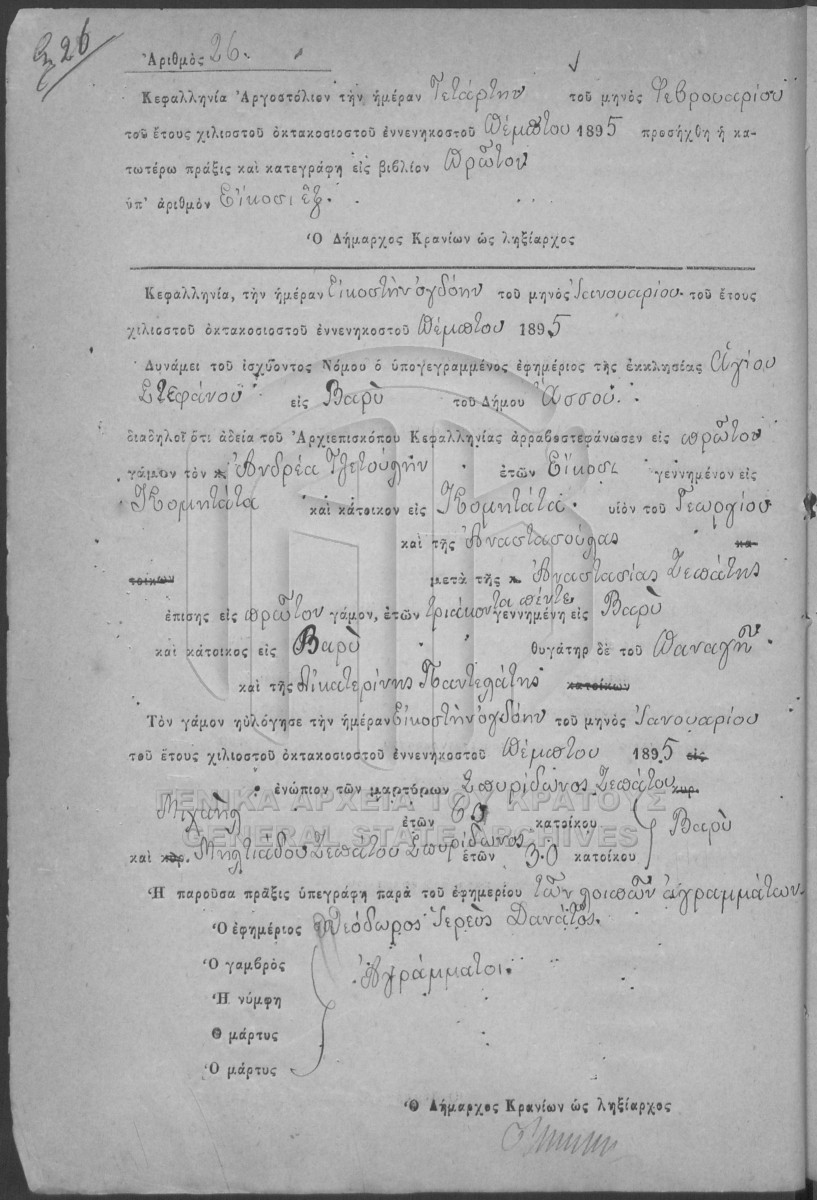 26
Ἀριθμὸς 26.
Κεφαλληνία Ἀργοστόλιον τὴν ἡμέραν Τετάρτην τοῦ μηνὸς Φεβρουαρίου
τοῦ ἔτους χιλιοστοῦ ὀκτακοσιοστοῦ ἐννενηκοστοῦ Πέμπτου 1895 προσήχθη ἡ κα-
τωτέρω πρᾶξις καὶ κατεγράφη εἰς βιβλίον Πρῶτον
ὑπ' ἀριθμὸν Εἴκοσι ἓξ.
Ὁ Δήμαρχος Κρανίων ὡς ληξίαρχος
Κεφαλληνία, τὴν ἡμέραν Εἰκοστὴν ὀγδόην τοῦ μηνὸς Ἰανουαρίου τοῦ ἔτους
χιλιοστοῦ ὀκτακοσιοστοῦ ἐννενηκοστοῦ Πέμπτου 1895
Δυνάμει τοῦ ἰσχύοντος Νόμου ὁ ὑπογεγραμμένος ἐφημέριος τῆς ἐκκλησίας Ἁγίου
Στεφάνου εἰς Βαρὺ τοῦ Δήμου Ἄσσου.
διαδηλοῖ ὅτι ἀδεία τοῦ Ἀρχιεπισκόπου Κεφαλληνίας ἀρραβοστεφάνωσεν εἰς πρῶτον
γάμον τὸν κ. Ἀνδρέα Τζετούλην ἐτῶν Εἴκοσι γεννημένον εἰς
Κομητάτα καὶ κάτοικον εἰς Κομητάτα. υἱὸν τοῦ Γεωργίου
καὶ τῆς Ἀναστασούλας κα-
τοίκων μετὰ τῆς κ. Ἀναστασίας Ζεπάτης
ἐπίσης εἰς πρῶτον γάμον, ἐτῶν τριάκοντα πέντε γεννημένη εἰς Βαρὺ
καὶ κάτοικος εἰς Βαρὺ θυγάτηρ δὲ τοῦ Παναγῆ
καὶ τῆς Αἰκατερίνης Παντελάτης κατοίκων
Τὸν γάμον ηὐλόγησε τὴν ἡμέραν Εἰκοστὴν ὀγδόην τοῦ μηνὸς Ἰανουαρίου
τοῦ ἔτους χιλιοστοῦ ὀκτακοσιοστοῦ ἐννενηκοστοῦ Πέμπτου 1895 εἰς
ἐνώπιον τῶν μαρτύρων Σπυρίδωνος Ζεπάτου κυρ.
Μιχαὴλ ἐτῶν κατοίκου Βαρὺ
καὶ κυρ. Μηλτιάδου Ζεπάτου Σπυρίδωνος ἐτῶν 30 κατοίκου
ΓΕΝΙΚΑ ΑΡΧΕΙΑ ΤΟΥ ΚΡΑΤΟΥΣ
GENERAL STATE ARCHIVES
Ἡ παροῦσα πρᾶξις ὑπεγράφη παρὰ τοῦ ἐφημερίου τῶν λοιπῶν ἀγραμμάτων
Ὁ ἐφημέριος Θεόδωρος Ἱερεὺς Δανάτος.
Ὁ γαμβρὸς Ἀγράμματοι.
Ἡ νύμφη
Ὁ μάρτυς
Ὁ μάρτυς
Ὁ Δήμαρχος Κρανίων ὡς ληξίαρχος